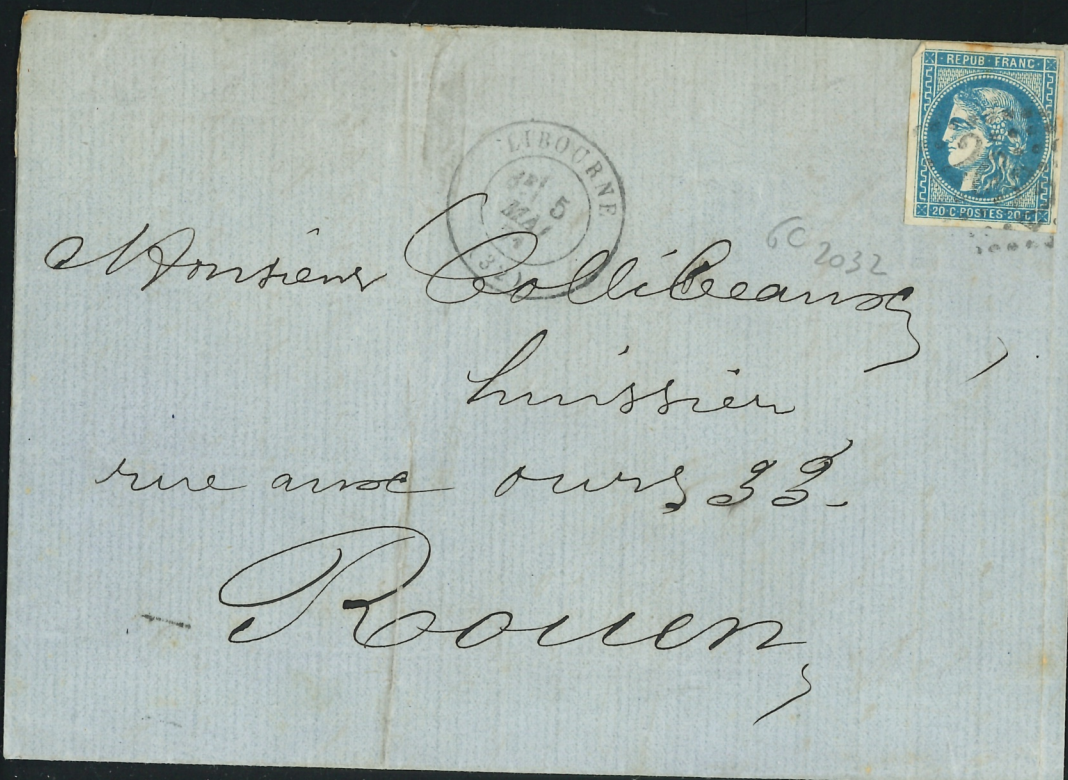 REPUB · FRANC ·
20 C · POSTES · 20 C
LIBOURNE
5
MAI
71
(32)
GC 2032
Monsieur Collibeaux,
huissier
rue aux ours 33.
Rouen,